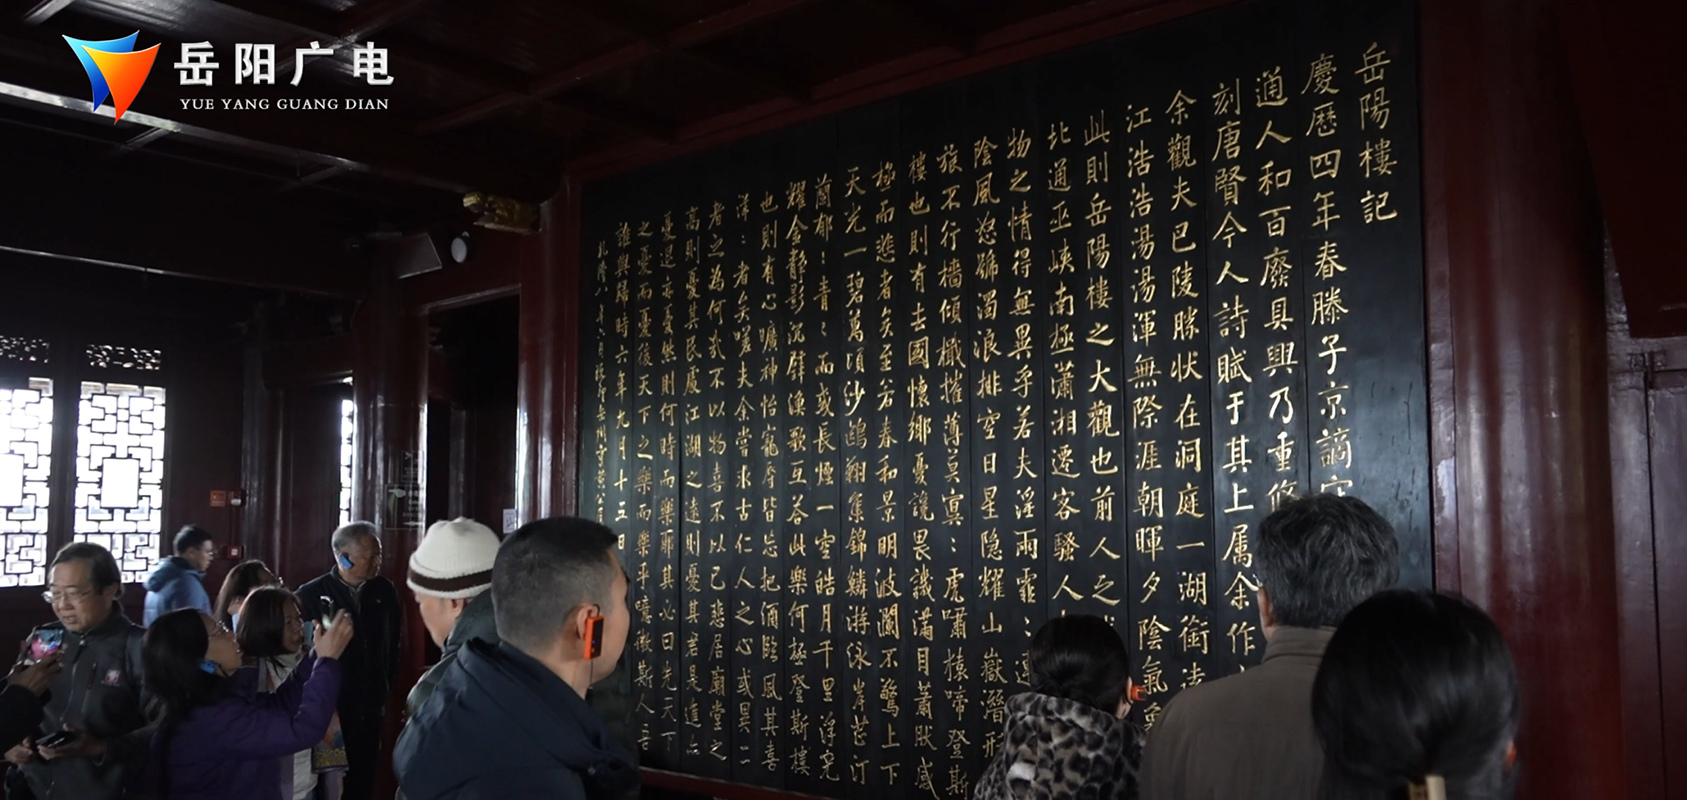 岳阳广电
YUE YANG GUANG DIAN
岳陽樓記
慶曆四年春滕子京謫守
通人和百廢具興乃重修
刻唐賢今人詩賦于其上属余作
余觀夫巴陵勝状在洞庭一湖銜遠
江浩浩湯湯渾無際涯朝暉夕陰氣象
此則岳陽樓之大觀也前人之
北通巫峽南極瀟湘遷客騷人
物之情得無異乎若夫淫雨霏：連
陰風怒號濁浪排空日星隱耀山嶽潛形
旅不行檣傾檝摧薄莫冥：虎嘯猿啼登斯
樓也則有去國懷鄉憂讒畏譏滿目蕭然感
極而悲者矣至若春和景明波瀾不驚上下
天光一碧萬頃沙鷗翔集錦鱗游泳岸芷汀
蘭郁：青：而或長煙一空皓月千里浮光
耀金静影沉壁漁歌互荅此樂何極登斯樓
也則有心曠神怡寵辱皆忘把酒臨風其喜
洋：者矣嗟夫余嘗求古仁人之心或異二
者之為何哉不以物喜不以己悲居廟堂之
高則憂其民處江湖之遠則憂其君是進亦
憂退亦憂然則何時而樂耶其必曰先天下
之憂而憂後天下之樂而樂乎噫微斯人吾
誰與歸時六年九月十五日